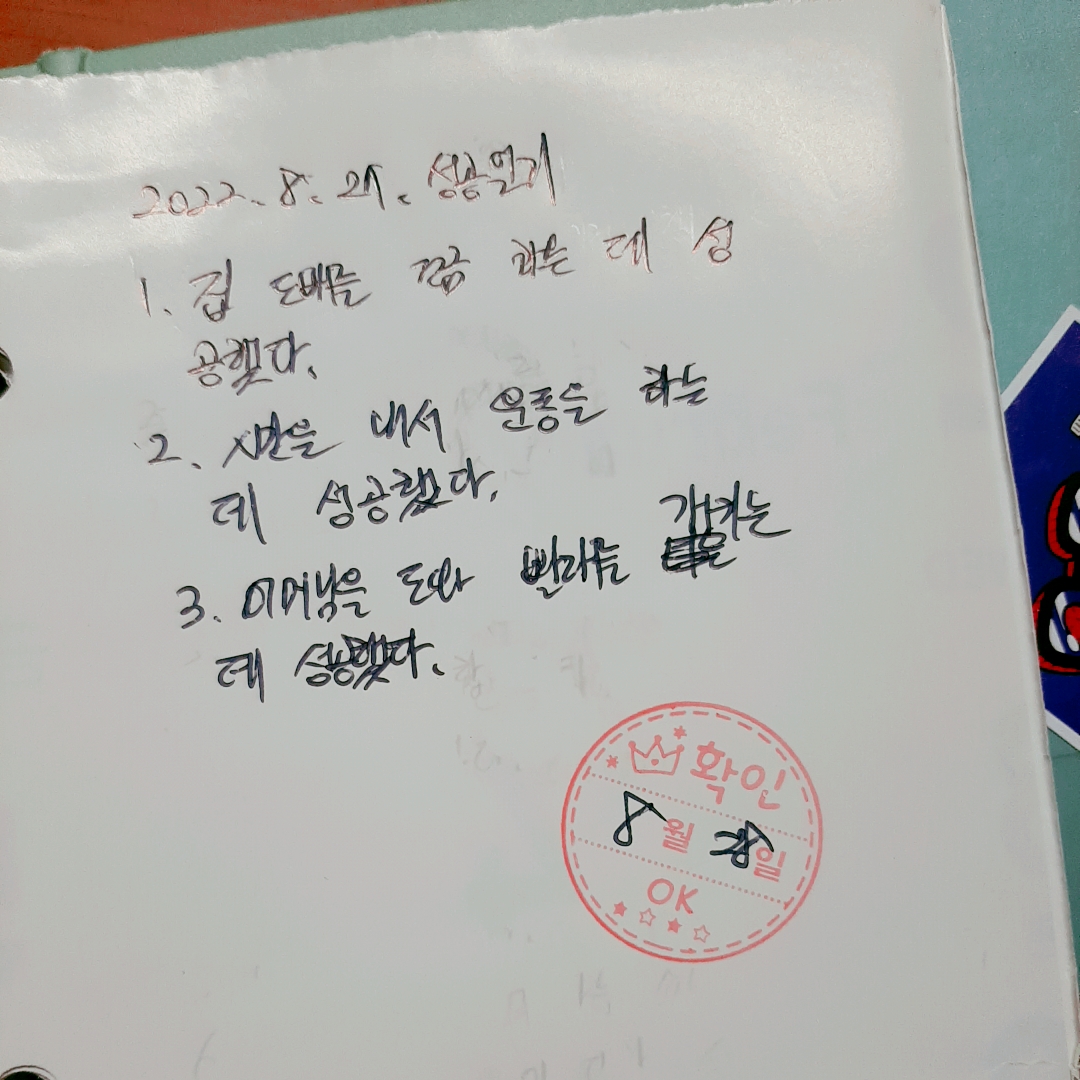 2022. 8. 27. 성공일기
1. 집 도배를 조금 하는 데 성
공했다.
2. 시간을 내서 운동을 하는
데 성공했다.
3. 어머님을 도와 빨래를
데 성공했다.
확인
8월 28일
OK